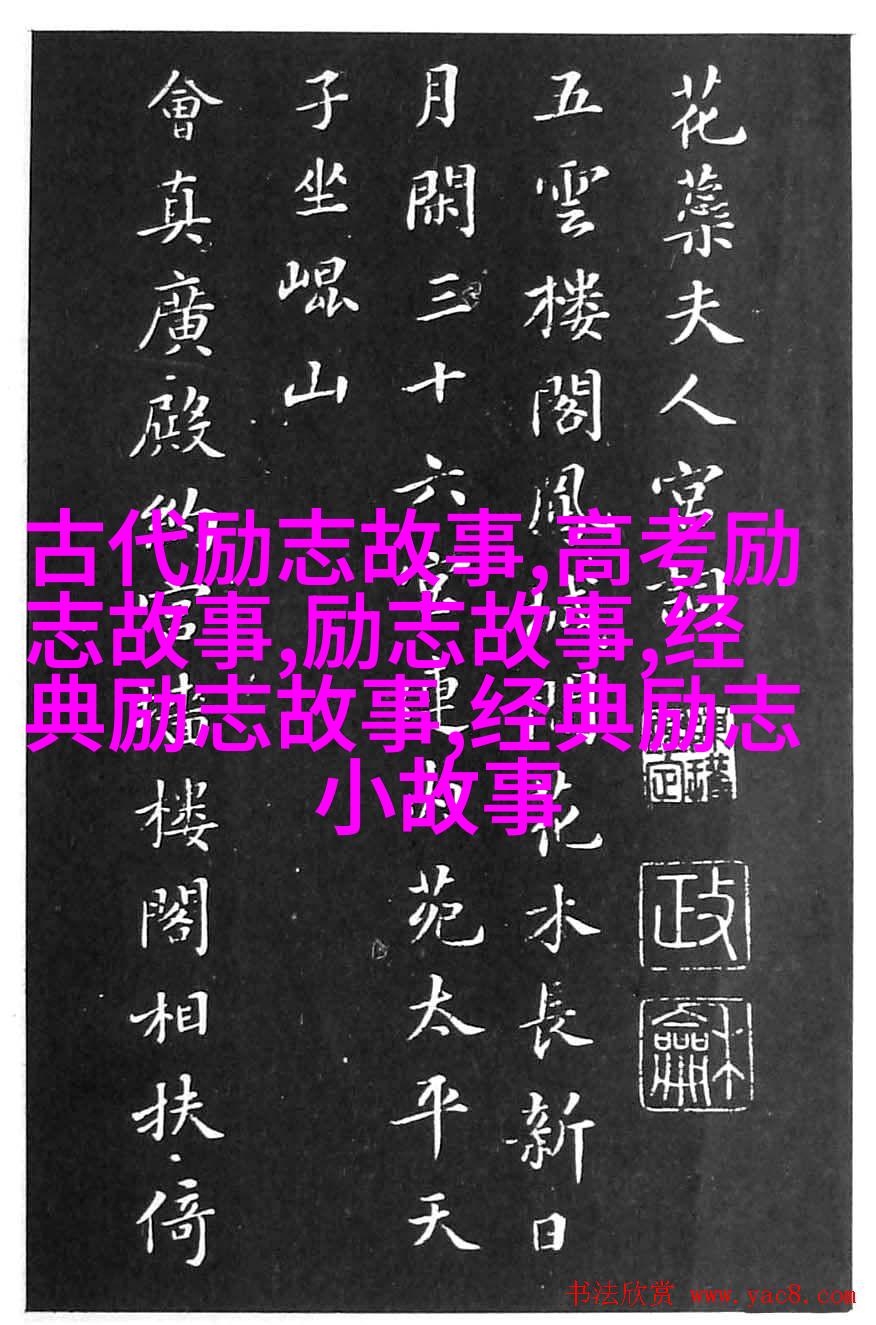 花蘂夫人宮詞
五雲楼閣鳳城間花水長新日
月閑三十六宮連内苑太平天
子坐崐山
會真廣殿約宮牆楼閣相扶倚
政
龢
古代励志故事,高考励
志故事,励志故事,经
典励志故事,经典励志
小故事
书法欣赏 www.yac8.com